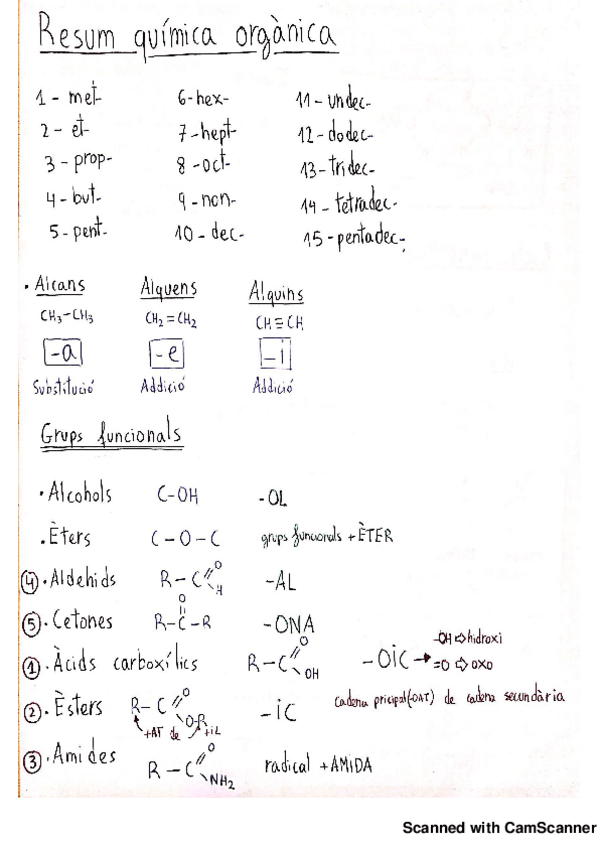 Resum química orgànica
1 - met- 6 - hex- 11 - undec-
2 - et- 7 - hept- 12 - dodec-
3 - prop- 8 - oct- 13 - tridec-
4 - but- 9 - non- 14 - tetradec-
5 - pent- 10 - dec- 15 - pentadec-
· Alcans Alquens Alquins
CH3-CH3 CH2=CH2 CH≡CH
-a -e -i
Substitució Addició Addició
Grups funcionals
· Alcohols C-OH -OL
· Èters C-O-C grups funcionals + ÈTER
④ · Aldehids R-C=O H -AL
⑤ · Cetones R-C=O-R -ONA
① · Àcids carboxílics R-C=O OH -OIC → -OH ⇨ hidroxi
=O ⇨ oxo
② · Èsters R-C=O O-R -iC cadena pricipal (-OAT) de cadena secundària
+AT de +iL
③ · Amides R-C=O NH2 radical + AMIDA
Scanned with CamScanner